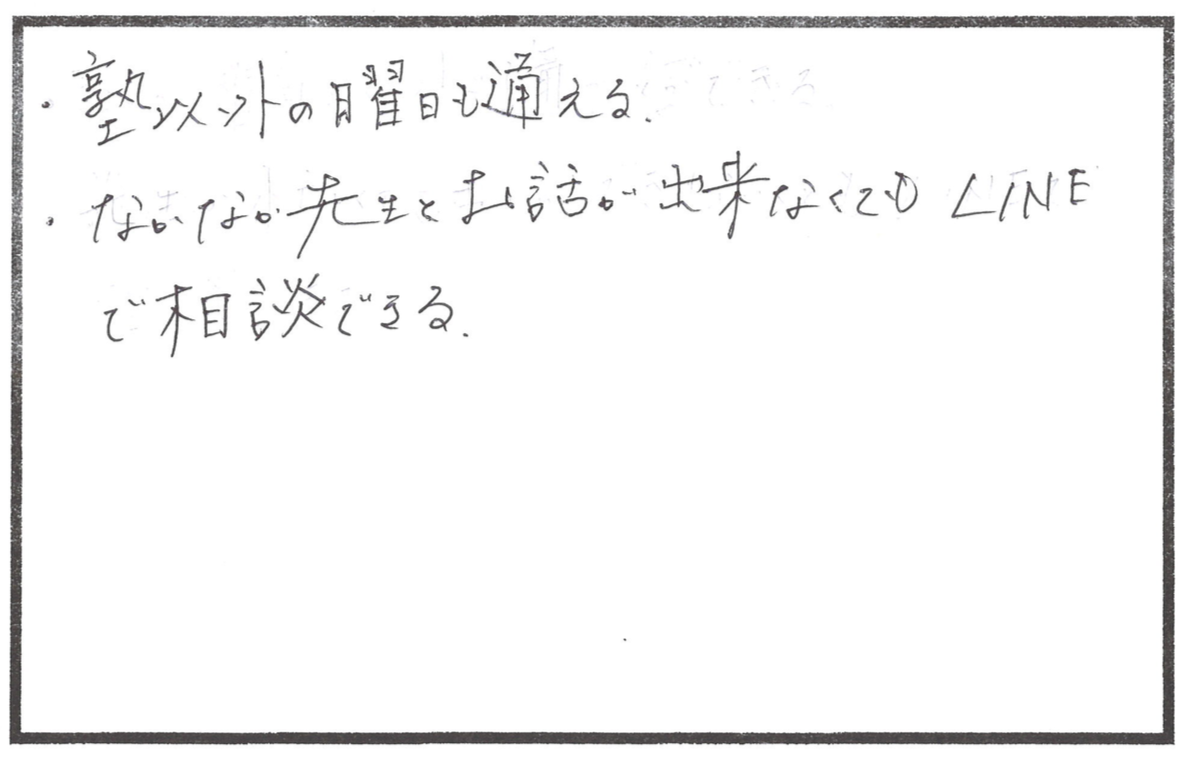 ・塾以外の日曜日も通える.
・なかなか先生とお話が出来なくてもLINE
で相談できる.